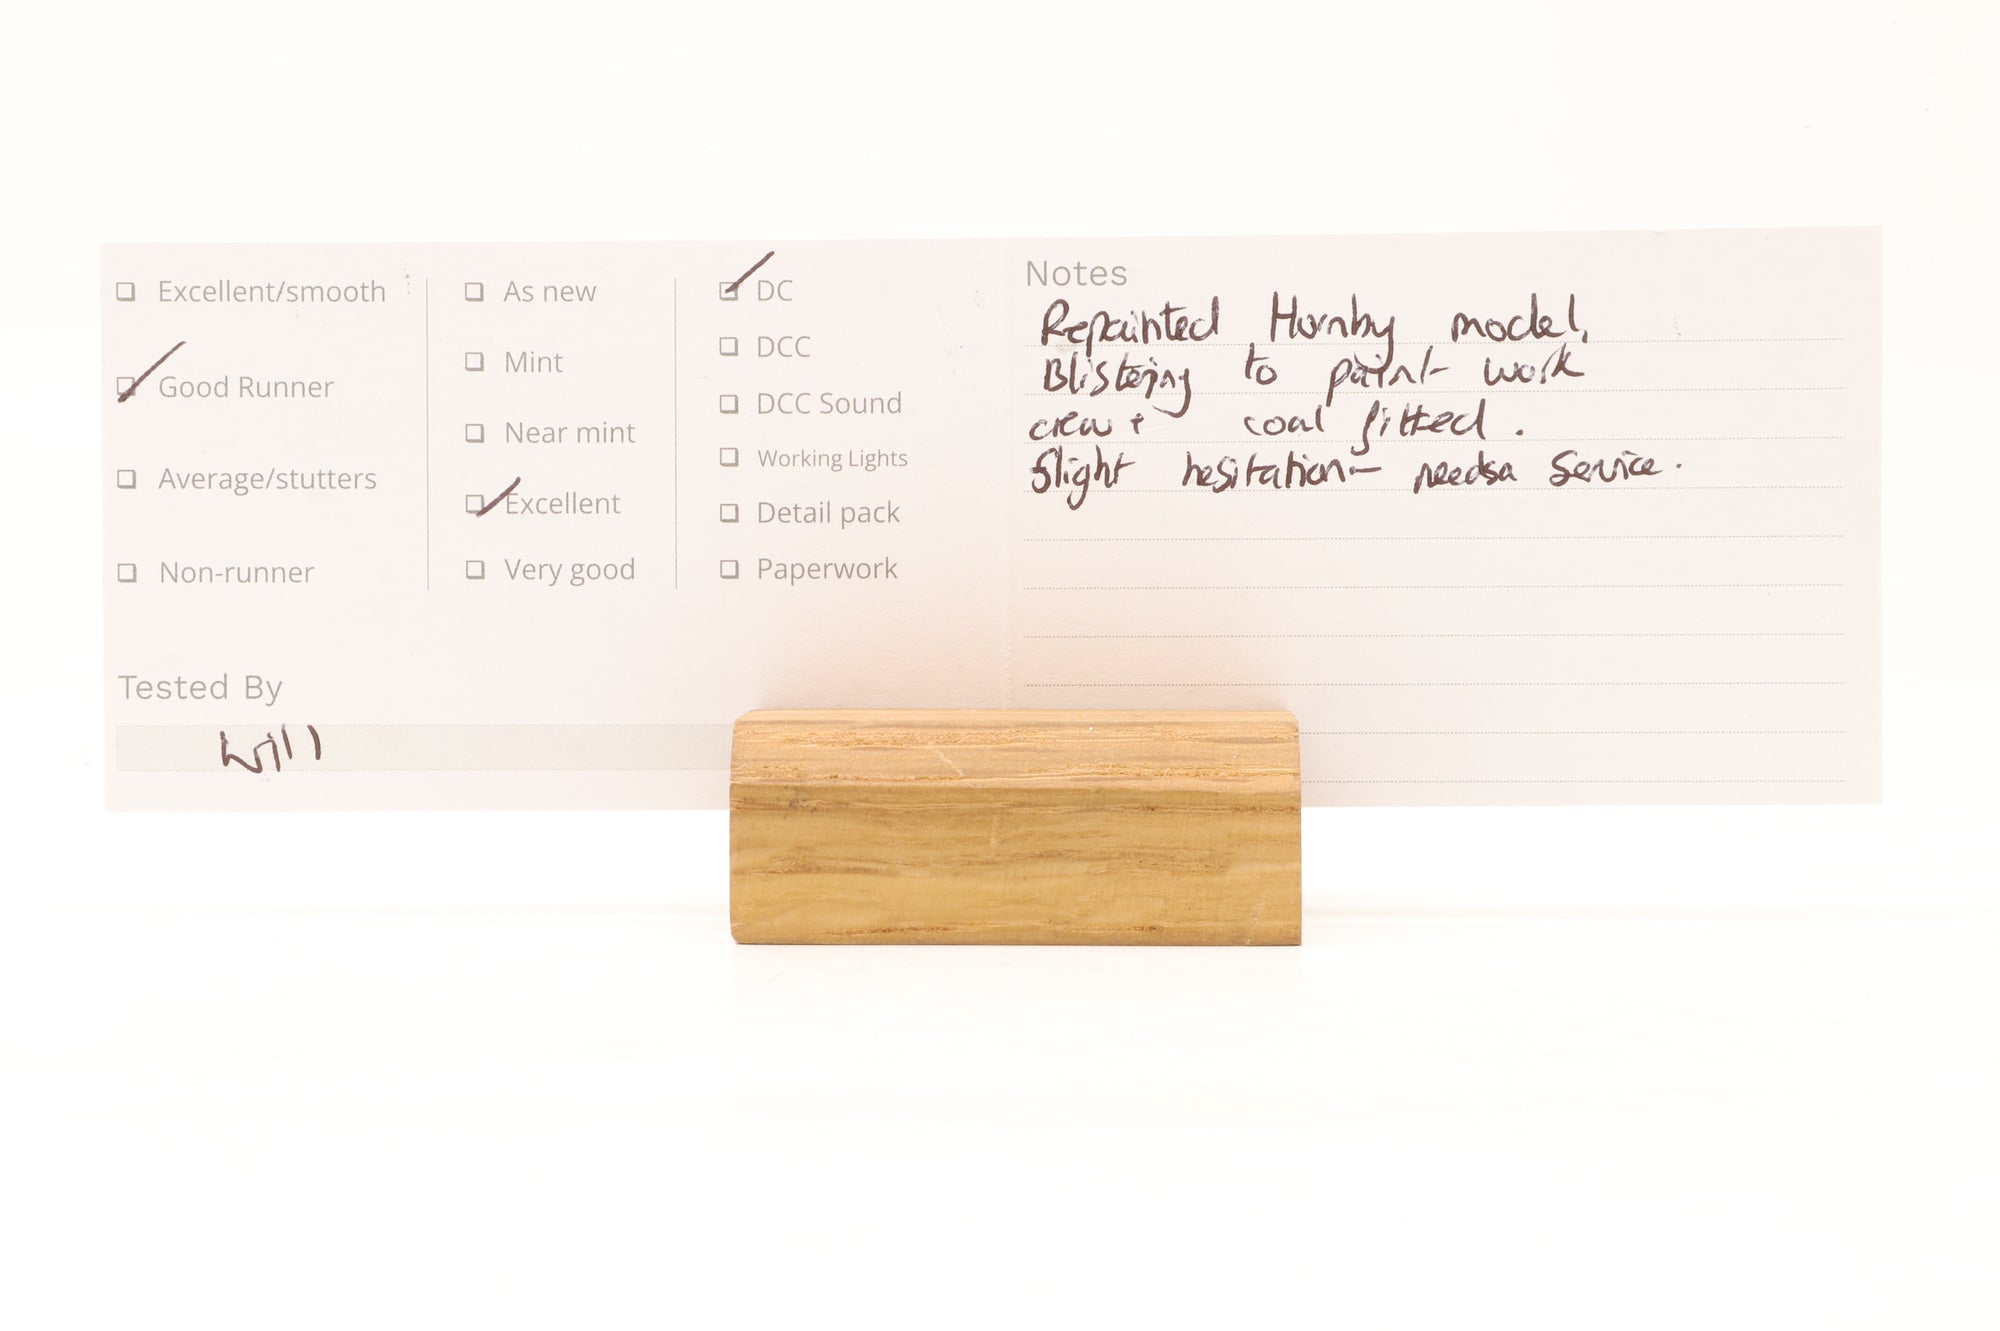 Excellent/smooth
Good Runner
Average/stutters
Non-runner
As new
Mint
Near mint
Excellent
Very good
DC
DCC
DCC Sound
Working Lights
Detail pack
Paperwork
Tested By
Will
Notes
Repainted Hornby model,
Blistering to paint work
crew + coal fitted.
Slight hesitation - needs a Service.